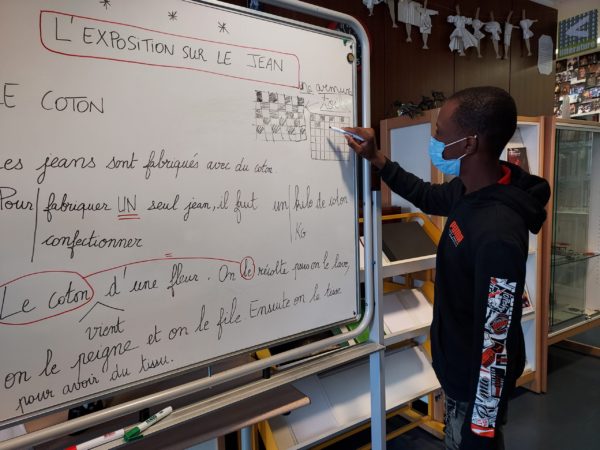 L'EXPOSITION SUR LE JEAN
LE COTON
une armure
Les jeans sont fabriqués avec du coton.
Pour fabriquer UN seul jean, il faut un kilo de coton
confectionner
KG
Le coton d'une fleur. On le récolte puis on le lave,
vient
on le peigne et on le file Ensuite on le tisse
pour avoir du tissu.